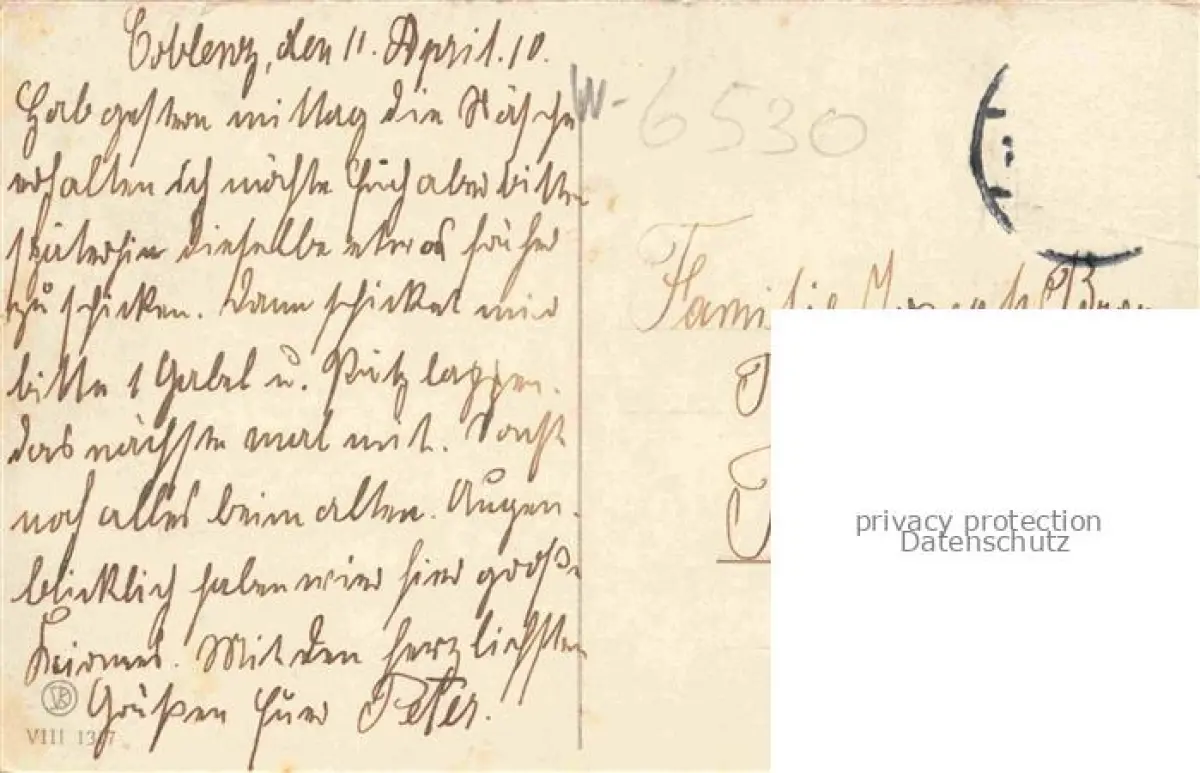 Coblenz, den 11. April. 10.
Hab gestern mittag die Wäsche
erhalten ich möchte Euch aber bitten
späterhin dieselbe etwas früher
zu schicken. Dann schicket mir
bitte 1 Gabel u. Putzlappen.
das nächste mal mit. Sonst
noch alles beim alten. Augen-
blicklich haben wir hier große
Kirmes. Mit den herzlichsten
Grüßen Euer Peter.
VIII
W-6530
Familie
privacy protection
Datenschutz